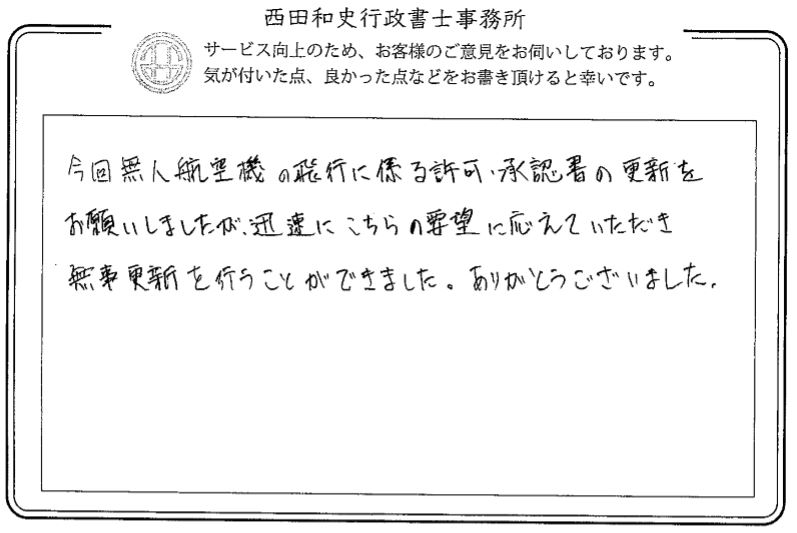 西田和史行政書士事務所
サービス向上のため、お客様のご意見をお伺いしております。
気が付いた点、良かった点などをお書き頂けると幸いです。
今回無人航空機の飛行に係る許可・承認書の更新を
お願いしましたが、迅速にこちらの要望に応えていただき
無事更新を行うことができました。ありがとうございました。